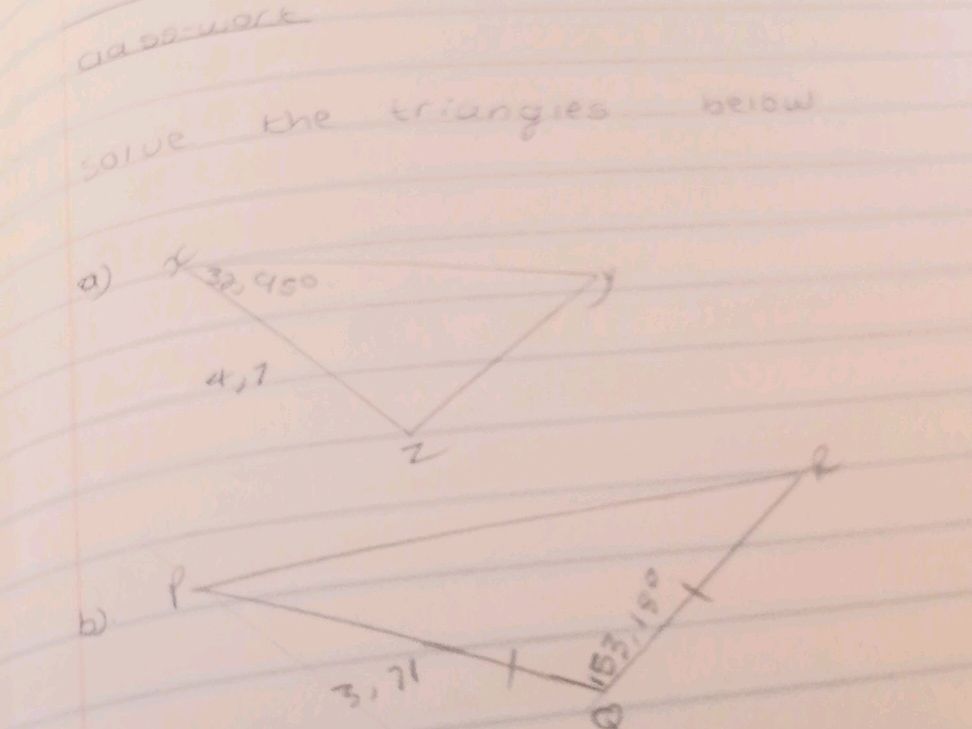 class-work
solve the triangles below
a) X 32,95° Y
4,7
Z
R
P
b) 153,15°
3,71
Q